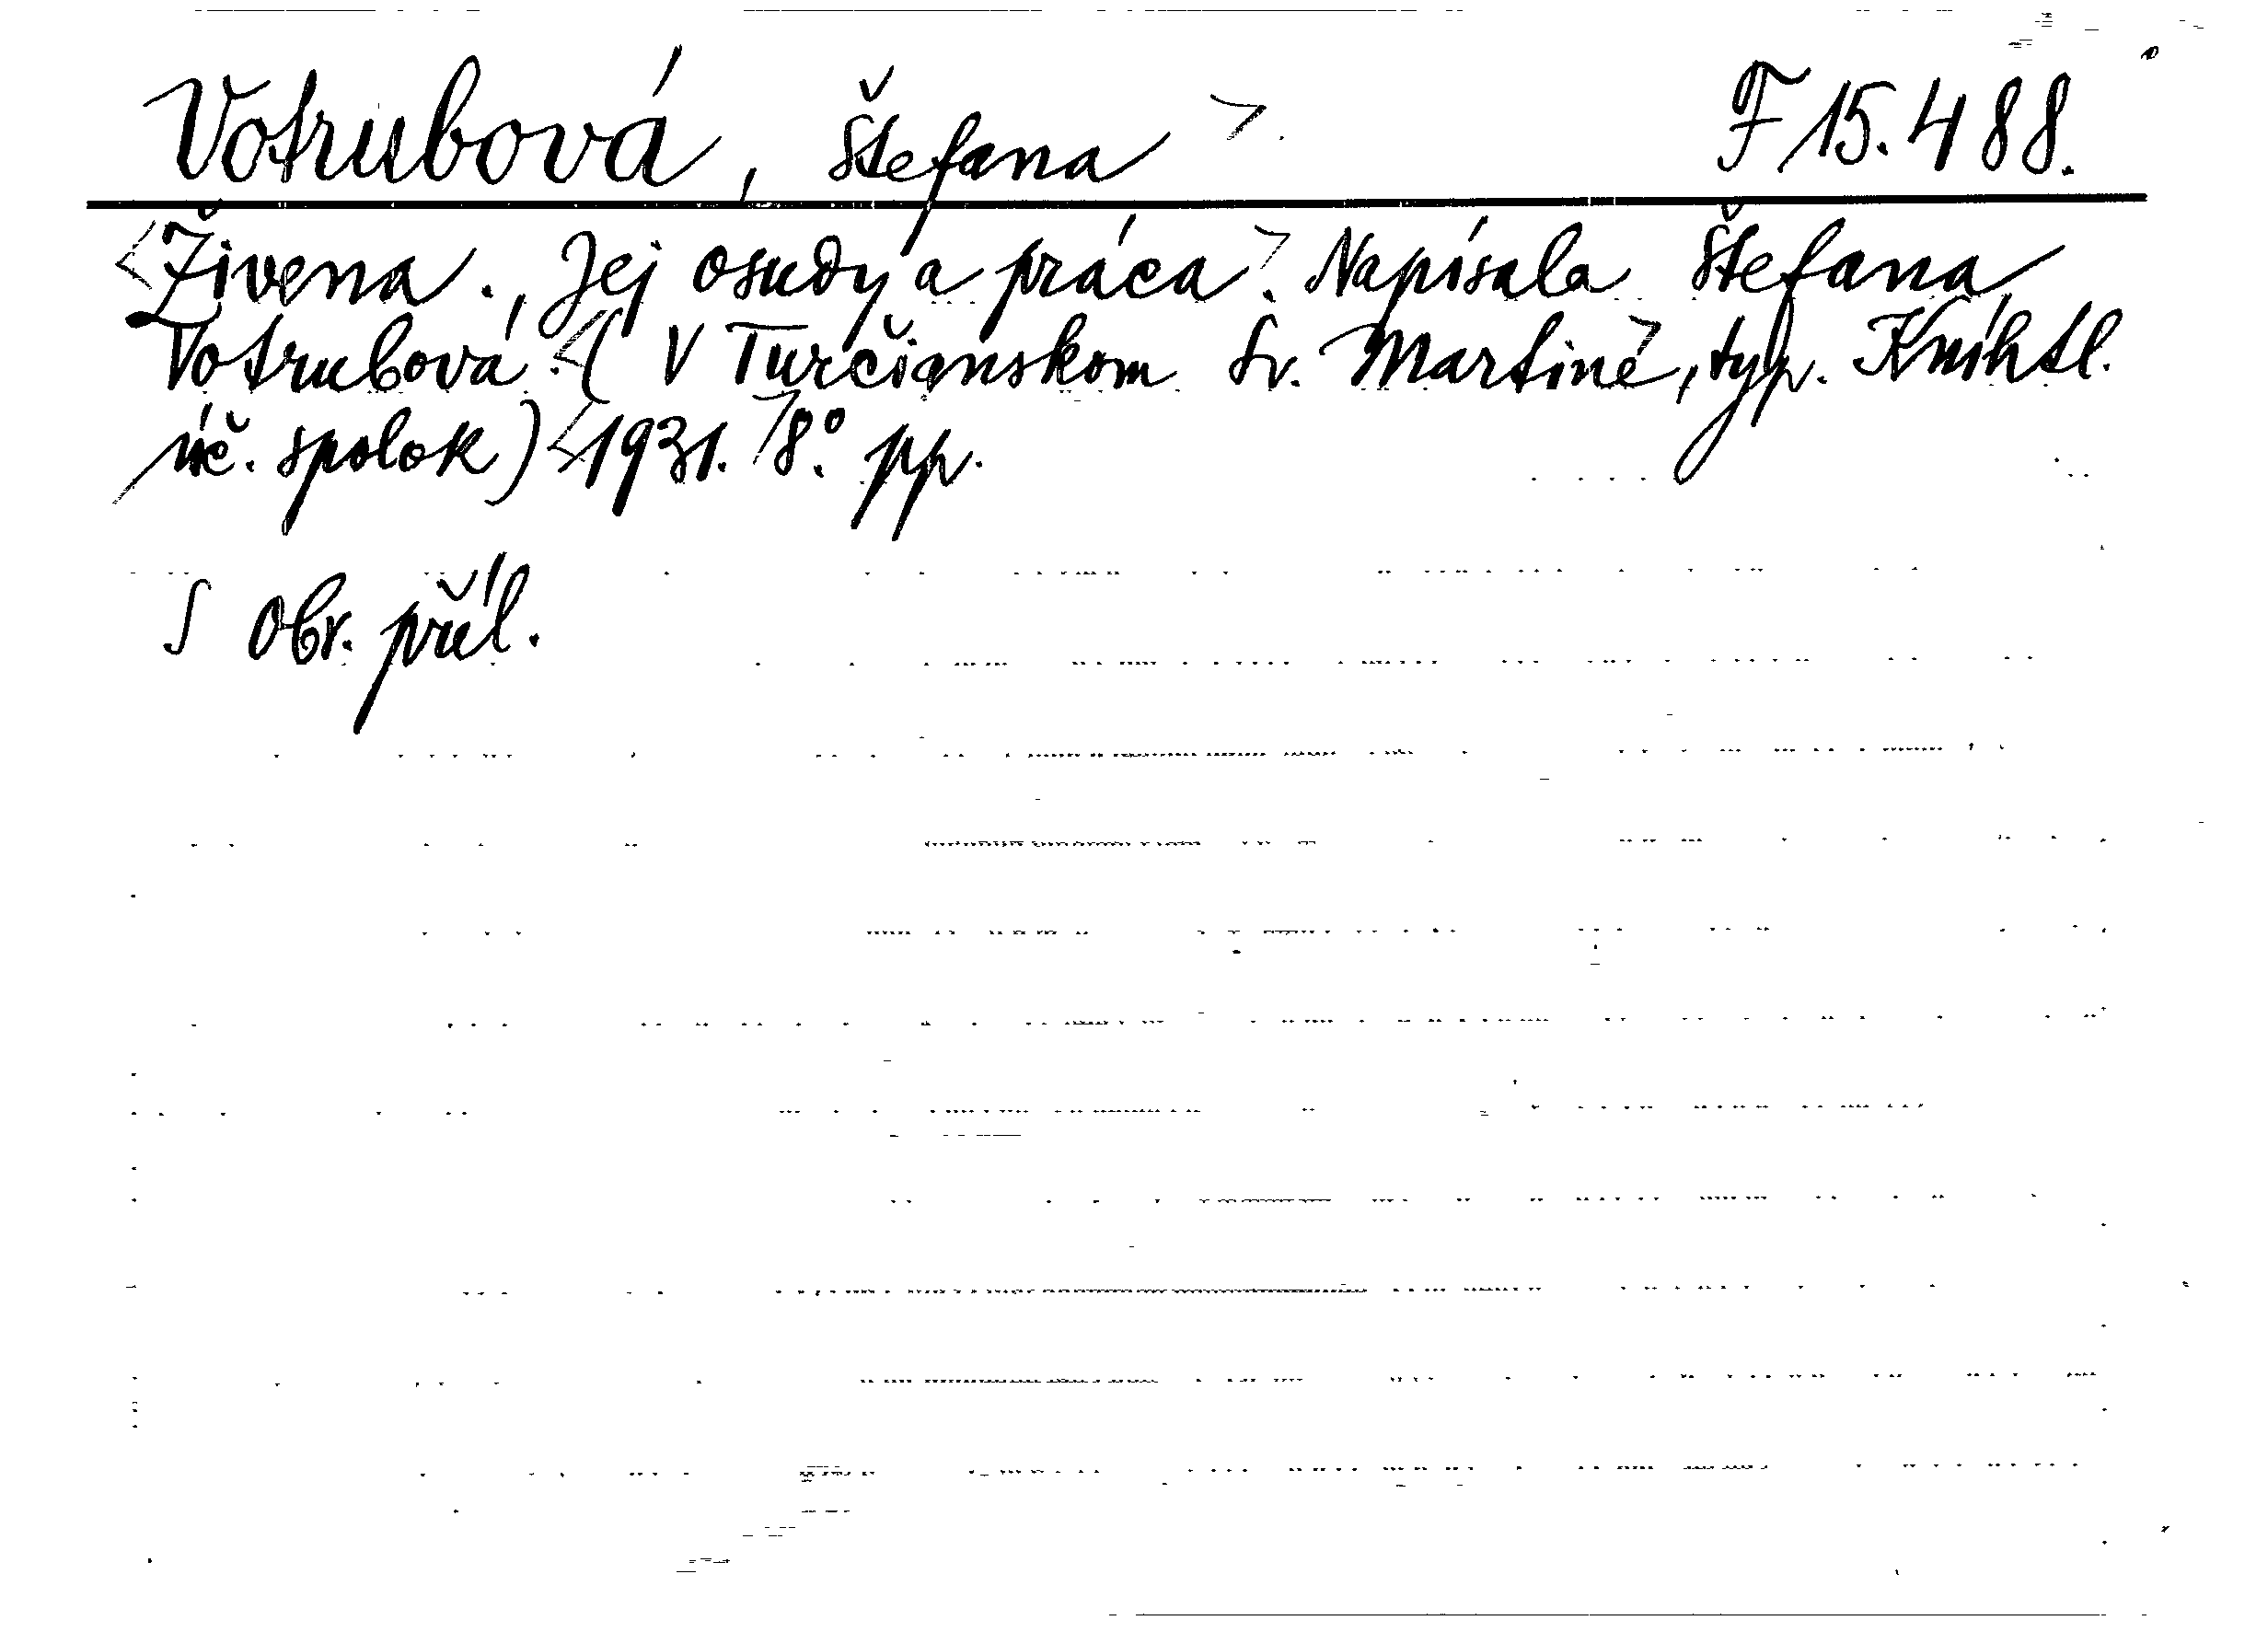 Votrubová, Štefana >. F 15.488.
<Živena., Jej osudy a práca>. Napísala Štefana
Votrubová. <( V Turčianskom Sv. Martině>, typ. Kníhtl.
úč. spolok) <1931. >8° pp.
S obr. příl.